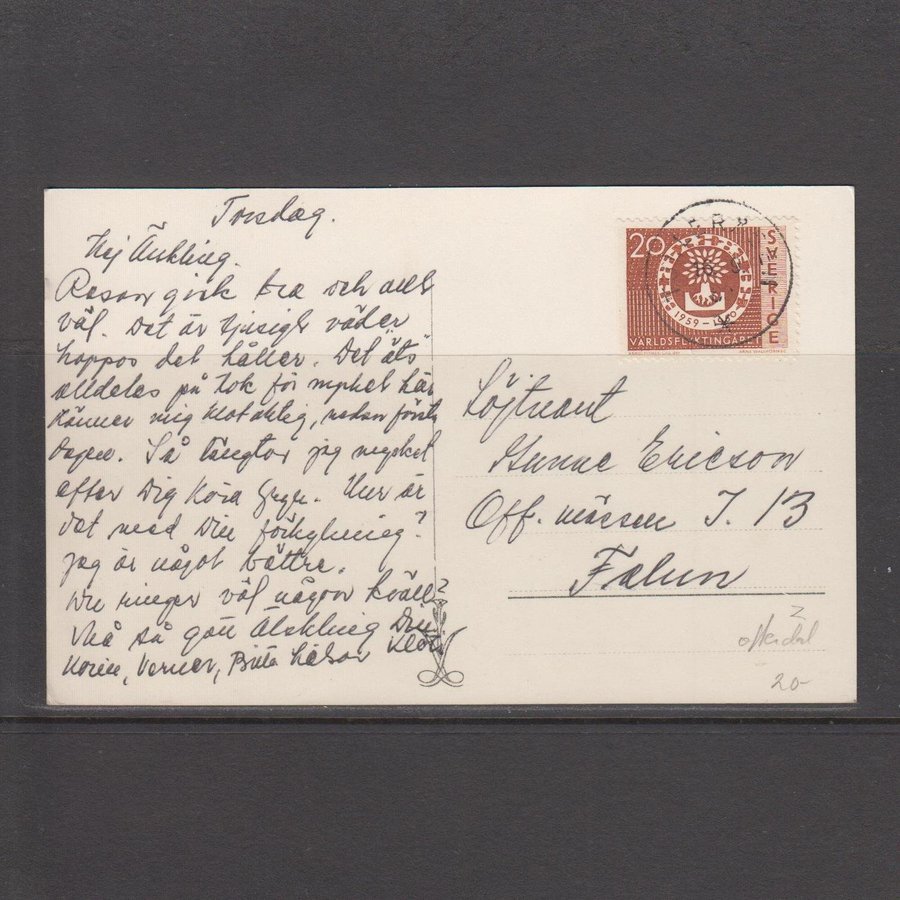 Torsdag.
Hej Älskling.
Resan gick bra och allt
väl. Det är tjusigt väder
hoppas det håller. Det äts
alldeles på tok för mycket här
känner mig klotaktig, redan första
dagen. Så längtar jag mycket
efter Dig Kära. Hur är
det med Din förkylning?
Jag är något bättre.
Du ringer väl någon kväll?
Må så gott Älskling Din
Verner, Britta hälsar
20
SVERIGE
1959-1960
VÄRLDSFLYKTINGÅRET
Löjtnant
Ericson
Off. mässen I. 13
Falun
20-